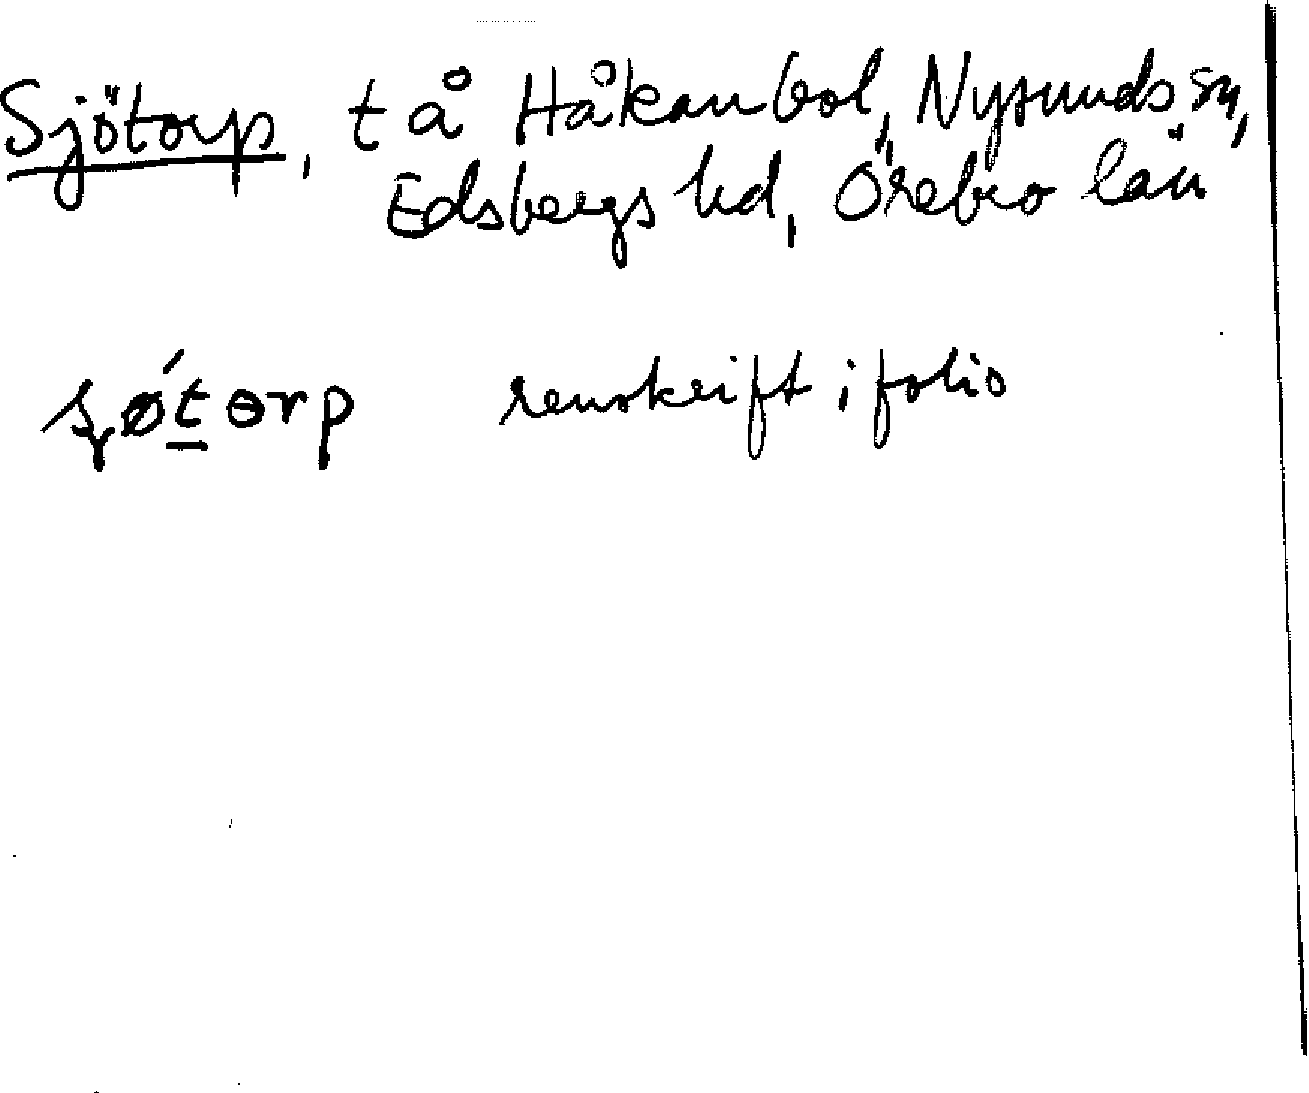 Sjötorp, t å Håkanbol, Nysunds sn,
Edsbergs hd, Örebro län
renskrift i folio